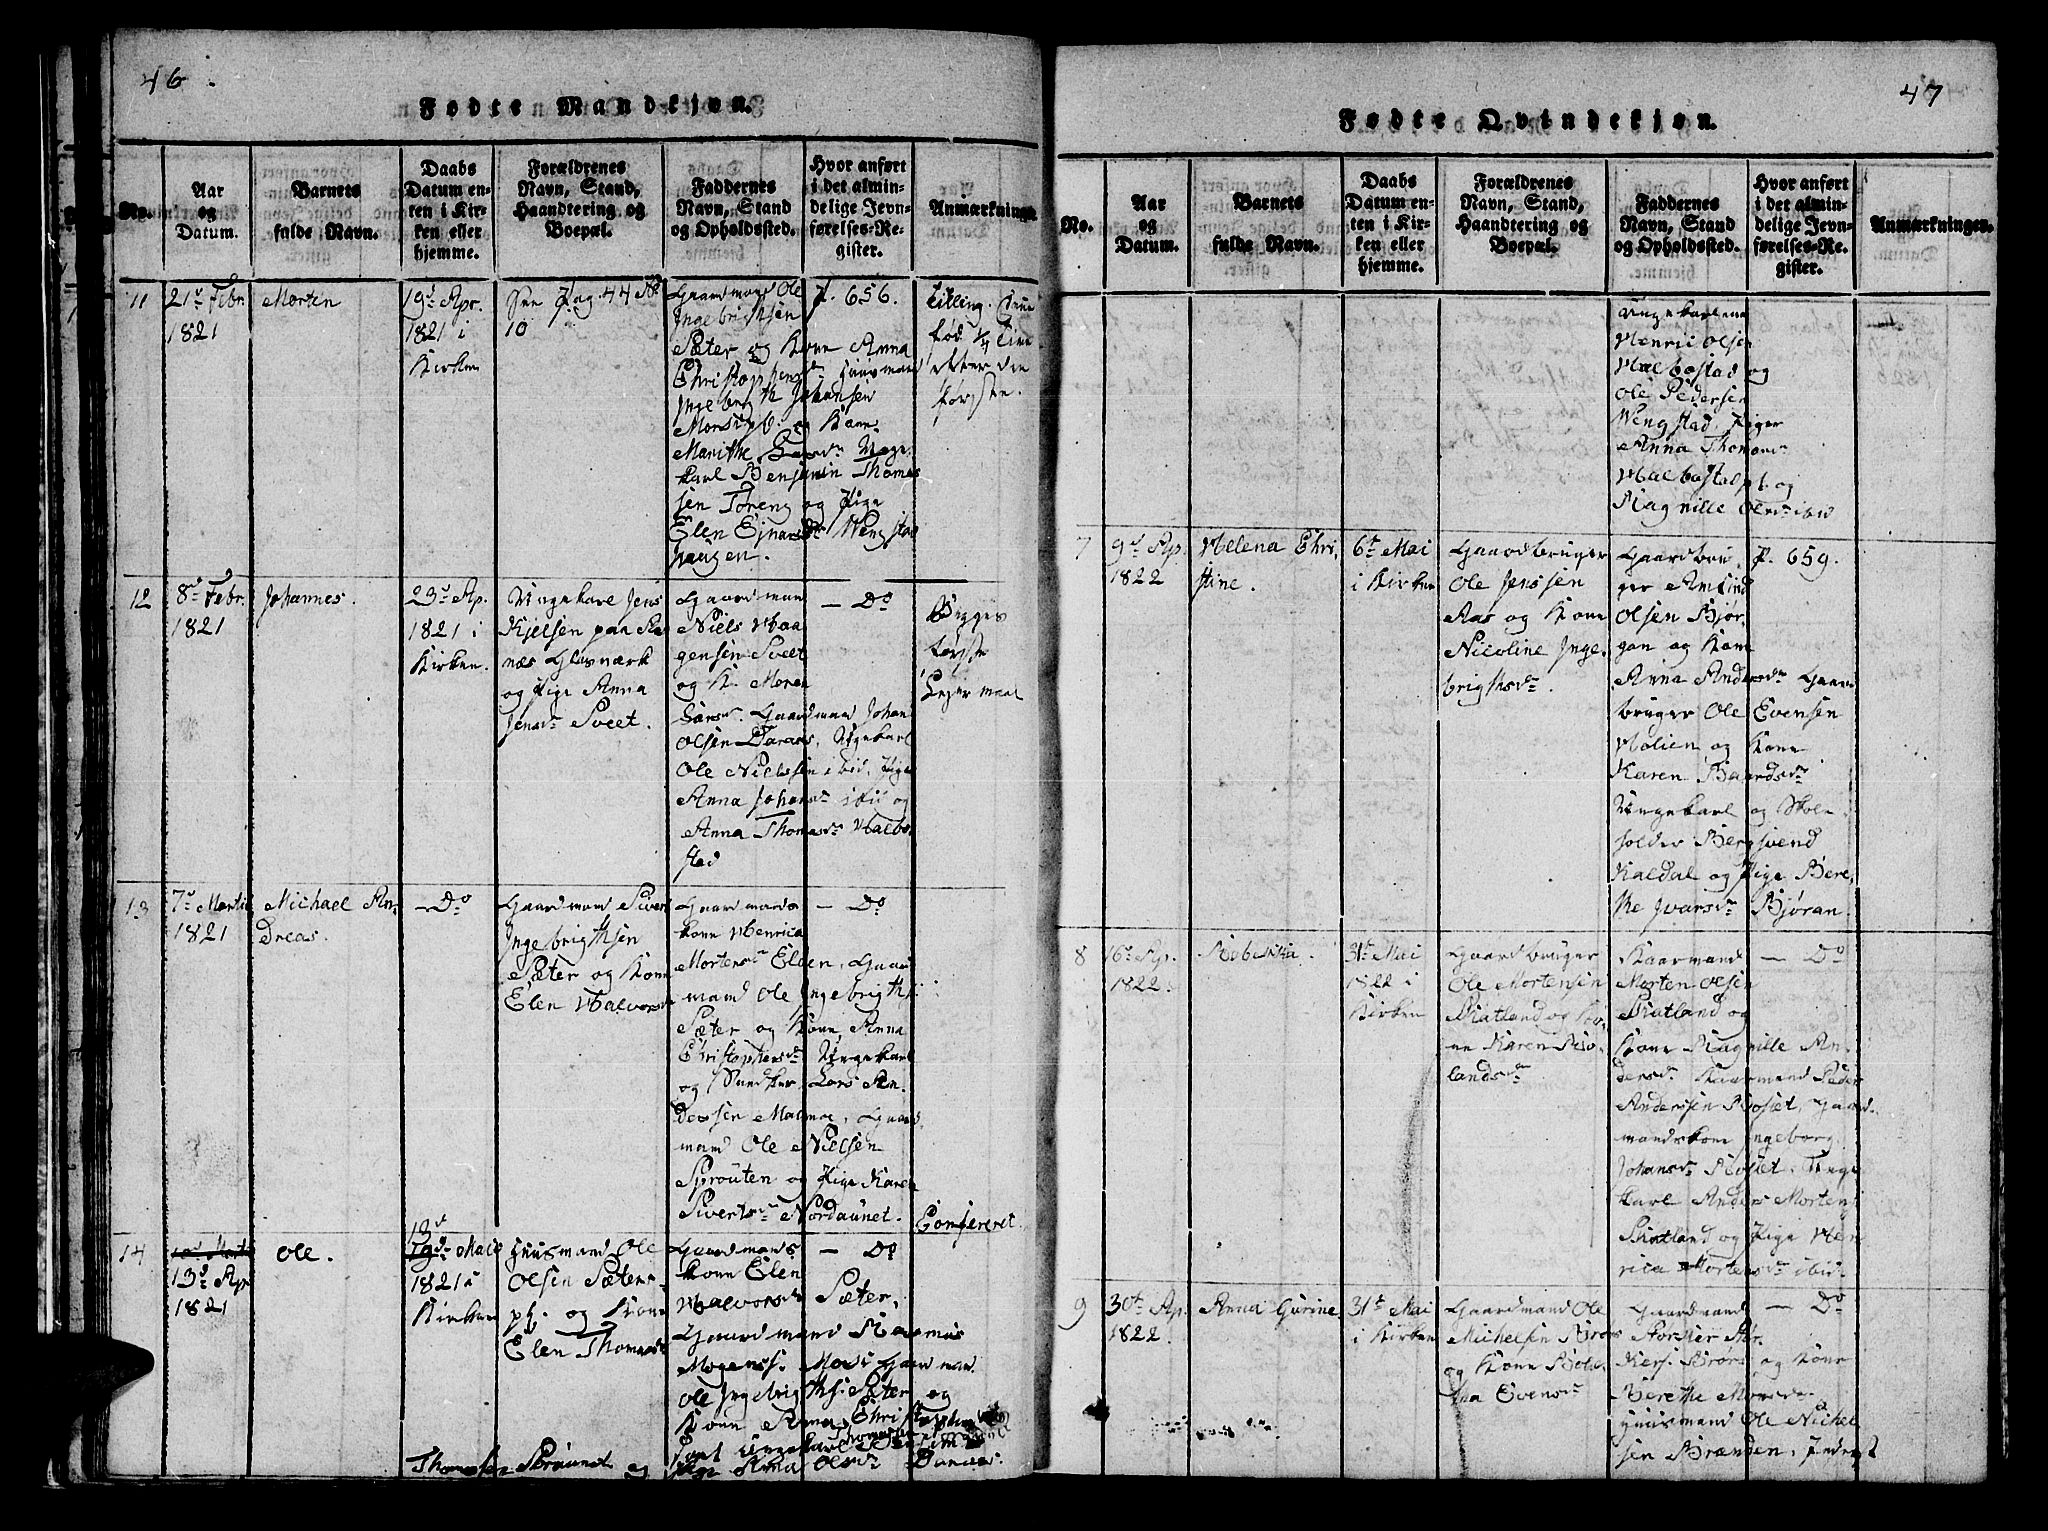 46
Fødte Mandkjøn.
No.
Aar
og
Datum.
Barnets
fulde Navn.
Daabs
Datum en-
ten i Kir-
ken eller
hjemme.
Forældrenes
Navn, Stand,
Haandtering og
Boepæl.
Faddernes
Navn, Stand
og Opholdssted.
Hvor anført
i det almin-
delige Jevn-
førelses-Re-
gister.
Anmærkninger.
11
21d Febr.
1821
Morten
19d Apr.
1821 i
Kirken
See Pag. 44 No
10
Gaardmand Ole
Ingebrigtsen
Sæter og Kone Anna
Ingebrigt Johansen
Marithe
karl Benjamin Thomes
sen Føreng og Pige
haugen.
P. 656.
Tvilling.
fød 1/4 Time
etter den
første.
12
8d Febr.
1821
Johannes.
23d Ap.
1821 i
Kirken.
Ungekarl Jens
Kjelsen paa
næs Glasværk
og Pige Anna
Jensdr Sveet.
Gaardmand
Niels Haa
gensen Sveet
og K. Meren
Larsdr. Gaardmand Johan
Olsen Daraas, Ungekarl
Ole Nielssen ibid, Pige
Anna Johansdr ibid og
Anna Thomasdr Halbo
stad
— Do
Begges
første
Lejermaal
13
7d Martii
1821
Michael An-
dreas.
— Do
Gaardmand Siver
Ingebrigthsen
Sæter og Kone
Elen Halvorsdr
Gaardmands
kone Henrica
Mortensdr Elden, Gaard
mand Ole Ingebrigths.
Sæter og Kone Anna
Christophersdr Ungekarl
og Snedker Lars An
dersen Malmoe, Gaard
mand Ole Nielsen
Sprøuten og Pige Karen
Sivertsdr Nordaunet.
— Do
14
13d Ap
1821
Ole.
13d
Maii
1821 i
Kirken
Huusmand Ole
Olsen Sæter-
pl. og Kone
Elen Thomasdr
Gaardmands
kone Elen
Halvorsdr Sæter,
Gaardmand Rasmus
Mogenss. Gaardman
Ole Ingebrigths: Sæter og
Kone Anna Christophersdr
— Do
Confereret.
47
Fødte Qvindekjøn.
No.
Aar
og
Datum.
Barnets
fulde Navn.
Daabs
Datum en-
ten i Kir-
ken eller
hjemme.
Forældrenes
Navn, Stand,
Haandtering og
Boepæl.
Faddernes
Navn, Stand
og Opholdssted.
Hvor anført
i det almin-
delige Jevn-
førelses-Re-
gister.
Anmærkninger.
Ungekarlene
Henric Olsen
Halbostad og
Ole Pedersen
Wengstad. Piger
Anna Thomasdr
Halbostadpl. og
Ragnille Olsdr ibid
7
9d Ap.
1822
Helena Chri
stine.
6te Mai
i Kirken
Gaardbruger
Ole Jenssen
Aas og Kone
Nicoline Inge
brigthsdr
Gaardbru
ger Amund
Olsen Bjør
gan og Kone
Anna Andersdr Gaard
bruger Ole Evensen
Holien og Kone
Karen Baardsdr
Ungekarl og Skole
holder Bergsvend
Kaldal og Pige Bere
the Ivarsdr Bjøran.
P. 659.
8
16de Ap.
1822.
Rebekka.
31te Mai
1822 i
Kirken
Gaardbruger
Ole Mortensen
Skatland og Ko
ne Karen Roe
landsdr
Kaarmand
Morten Olsen
Skatland og
Kone Ragnille An
dersdr. Kaarmand Peder
Anderssen Roset, Gaard
mandskone Ingeborg
Johansdr Roset. Unge
karl Anders Morten
Skatland og Pige Hen
rica Mortensdr ibid.
— Do
9
30te Ap.
1822.
Anna Gurine.
31te Mai
i Kirken
Gaardmand Ole
Michelsen Brørs
og Kone
Evensdr
Gaardmand
kers. Brørs og Kone
Berethe
Huusmand Ole Michel
sen Brænden,
— Do